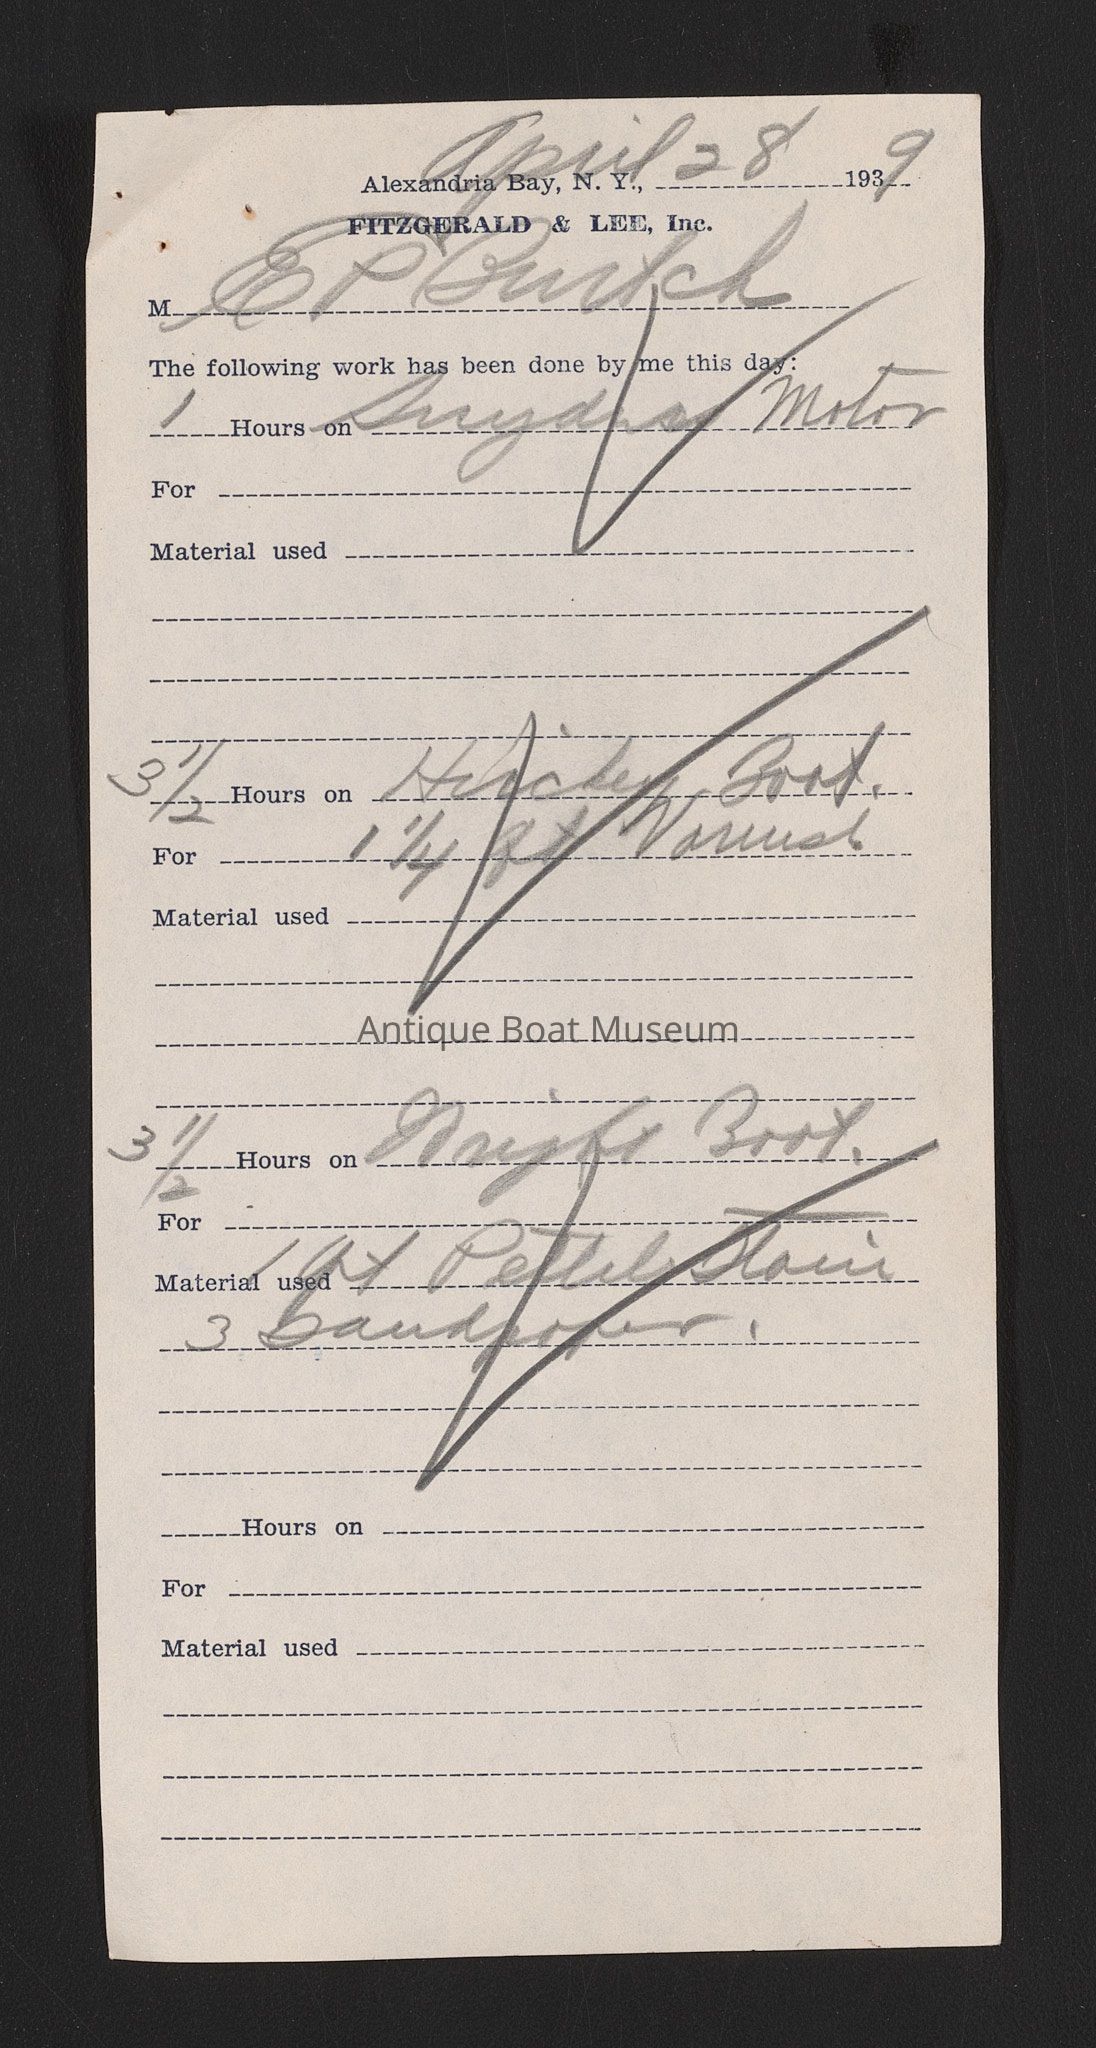 April 28 9
Alexandria Bay, N. Y., 193
FITZGERALD & LEE, Inc.
M E P Burtch
The following work has been done by me this day:
1 Hours on Snyders Motor
For
Material used
3 1/2 Hours on Hickey Boat.
For 1 1/4 qt Varnish
Material used
Antique Boat Museum
3 1/2 Hours on Wright Boat.
For
Material used 1 Qt Stain
3 Sandpaper.
Hours on
For
Material used